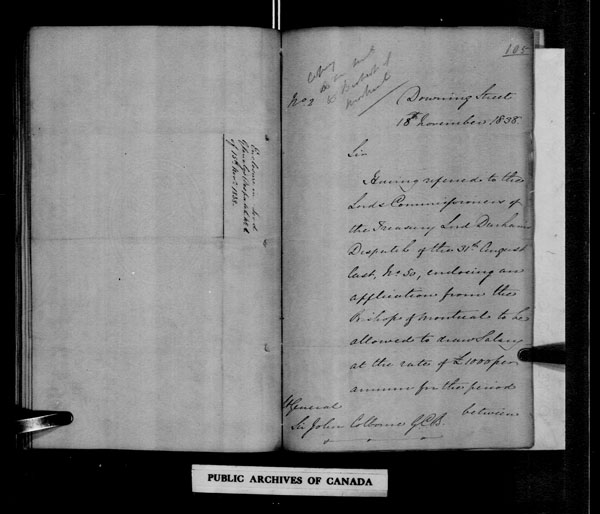 Enclosure in Lord
Glenelg's Despatch No 2
of 18th Novr 1838.
165
Copy
sent
to Bishop of
Montreal
No 2
Downing Street
18th November 1838
Sir
Having referred to the
Lords Commissioners of
the Treasury Lord Durham's
Despatch of the 31st August
last, No 50, enclosing an
application from the
Bishop of Montreal to be
allowed to draw Salary
at the rate of £1000 per
annum for the period
between
Lt General
Sir John Colborne G.C.B.
PUBLIC ARCHIVES OF CANADA